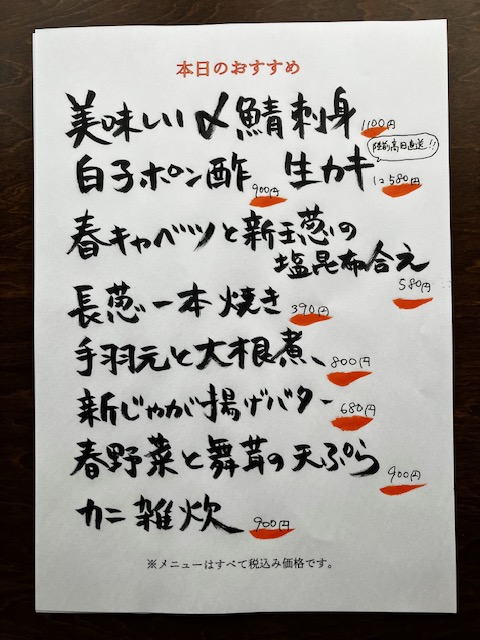 本日のおすすめ
美味しい〆鯖刺身 1100円
陸前高田直送!!
白子ポン酢 900円 生カキ 1コ580円
春キャベツと新玉葱の
塩昆布合え
580円
長葱一本焼き 390円
手羽元と大根煮 800円
新じゃが揚げバター 680円
春野菜と舞茸の天ぷら
900円
カニ雑炊 900円
※メニューはすべて税込み価格です。